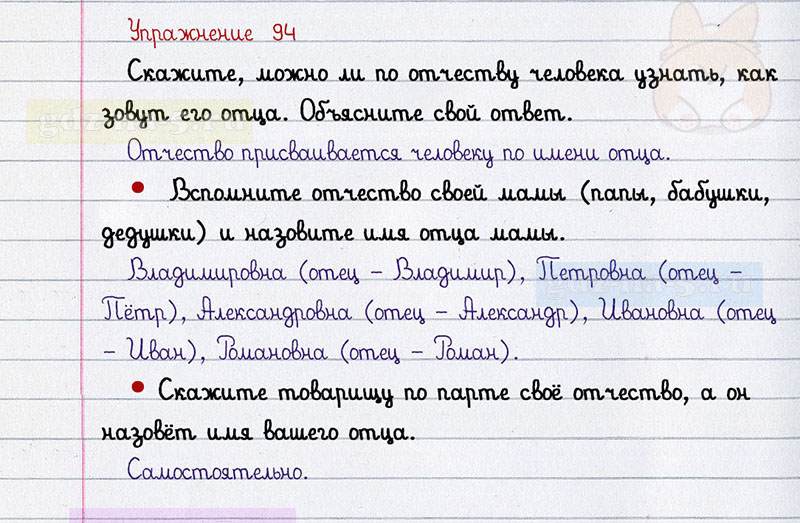 Упражнение 94
Скажите, можно ли по отчеству человека узнать, как
зовут его отца. Объясните свой ответ.
Отчество присваивается человеку по имени отца.
• Вспомните отчество своей мамы (папы, бабушки,
дедушки) и назовите имя отца мамы.
Владимировна (отец – Владимир), Петровна (отец –
Пётр), Александровна (отец – Александр), Ивановна (отец
– Иван), Романовна (отец – Роман).
• Скажите товарищу по парте своё отчество, а он
назовёт имя вашего отца.
Самостоятельно.